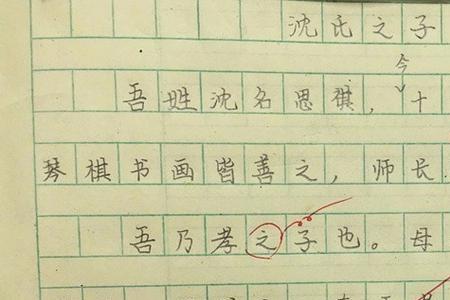 沈氏之子
今
吾姓沈名思祺，十
琴棋书画皆善之，师长
吾乃孝之子也。母